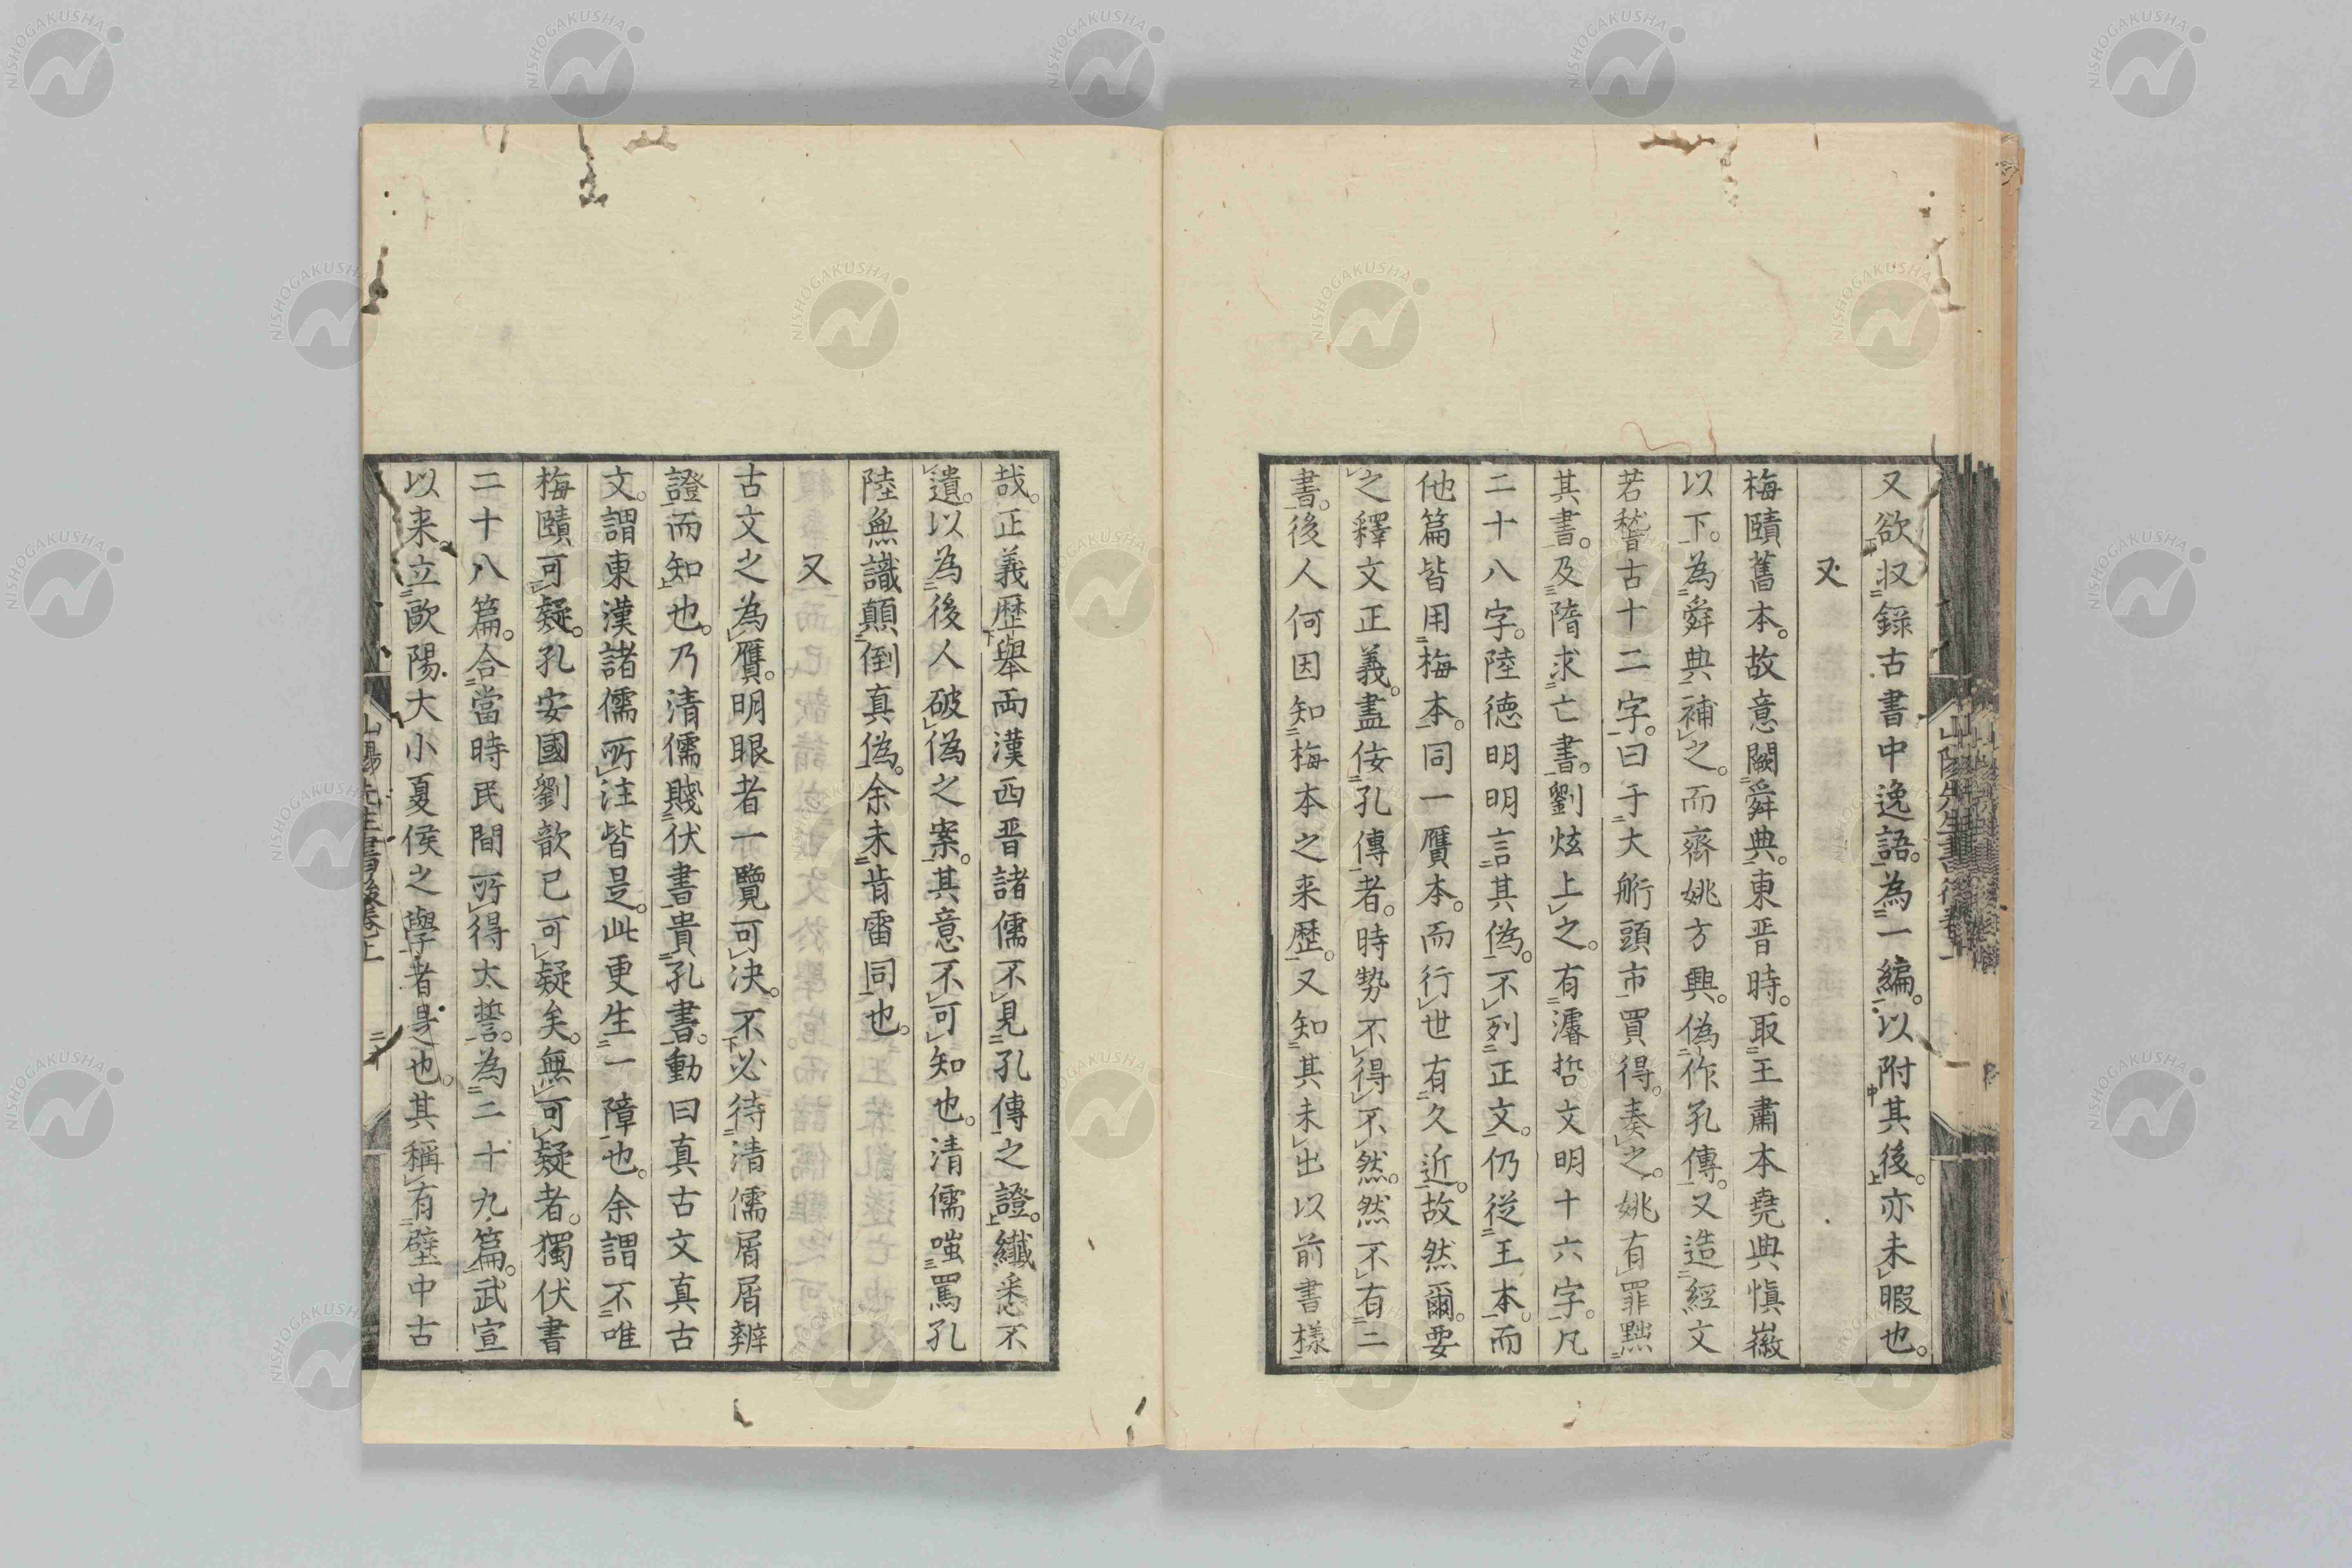 又欲収録古書中逸語。為一編。以附其後。亦未暇也。
又
梅賾舊本。故意闕舜典。東晋時。取王肅本堯典愼徽
以下。為舜典補之。而齊姚方興。偽作孔傳。又造經文
若嵆古十二字。曰于大舿頭市買得。奏之。姚有罪黜
其書。及隋求亡書。劉炫上之。有濬哲文明十六字。凡
二十八字。陸徳明明言其偽。不列正文。仍從王本。而
他篇皆用梅本。同一贋本。而行世有久近。故然爾。要
之釋文正義。盡侫孔傳者。時勢不得不然。然不有二
書。後人何因知梅本之来歴。又知其未出以前書様
哉。正義歴舉両漢西晋諸儒不見孔傳之證。纎悉不
遺。以為後人破偽之案。其意不可知也。清儒嗤罵孔
陸無識顛倒真偽。余未肯雷同也。
又
古文之為贋。明眼者一覽可决。不必待清儒屑屑辨
證而知也。乃清儒賤伏書貴孔書。動曰真古文真古
文。謂東漢諸儒所注皆是。此更生一障也。余謂不唯
梅賾可疑。孔安國劉歆已可疑矣。無可疑者。獨伏書
二十八篇。合當時民間所得太誓。為二十九篇。武宣
以来。立歐陽大小夏侯之學者是也。其稱有壁中古
山陽先生書後卷上
二十